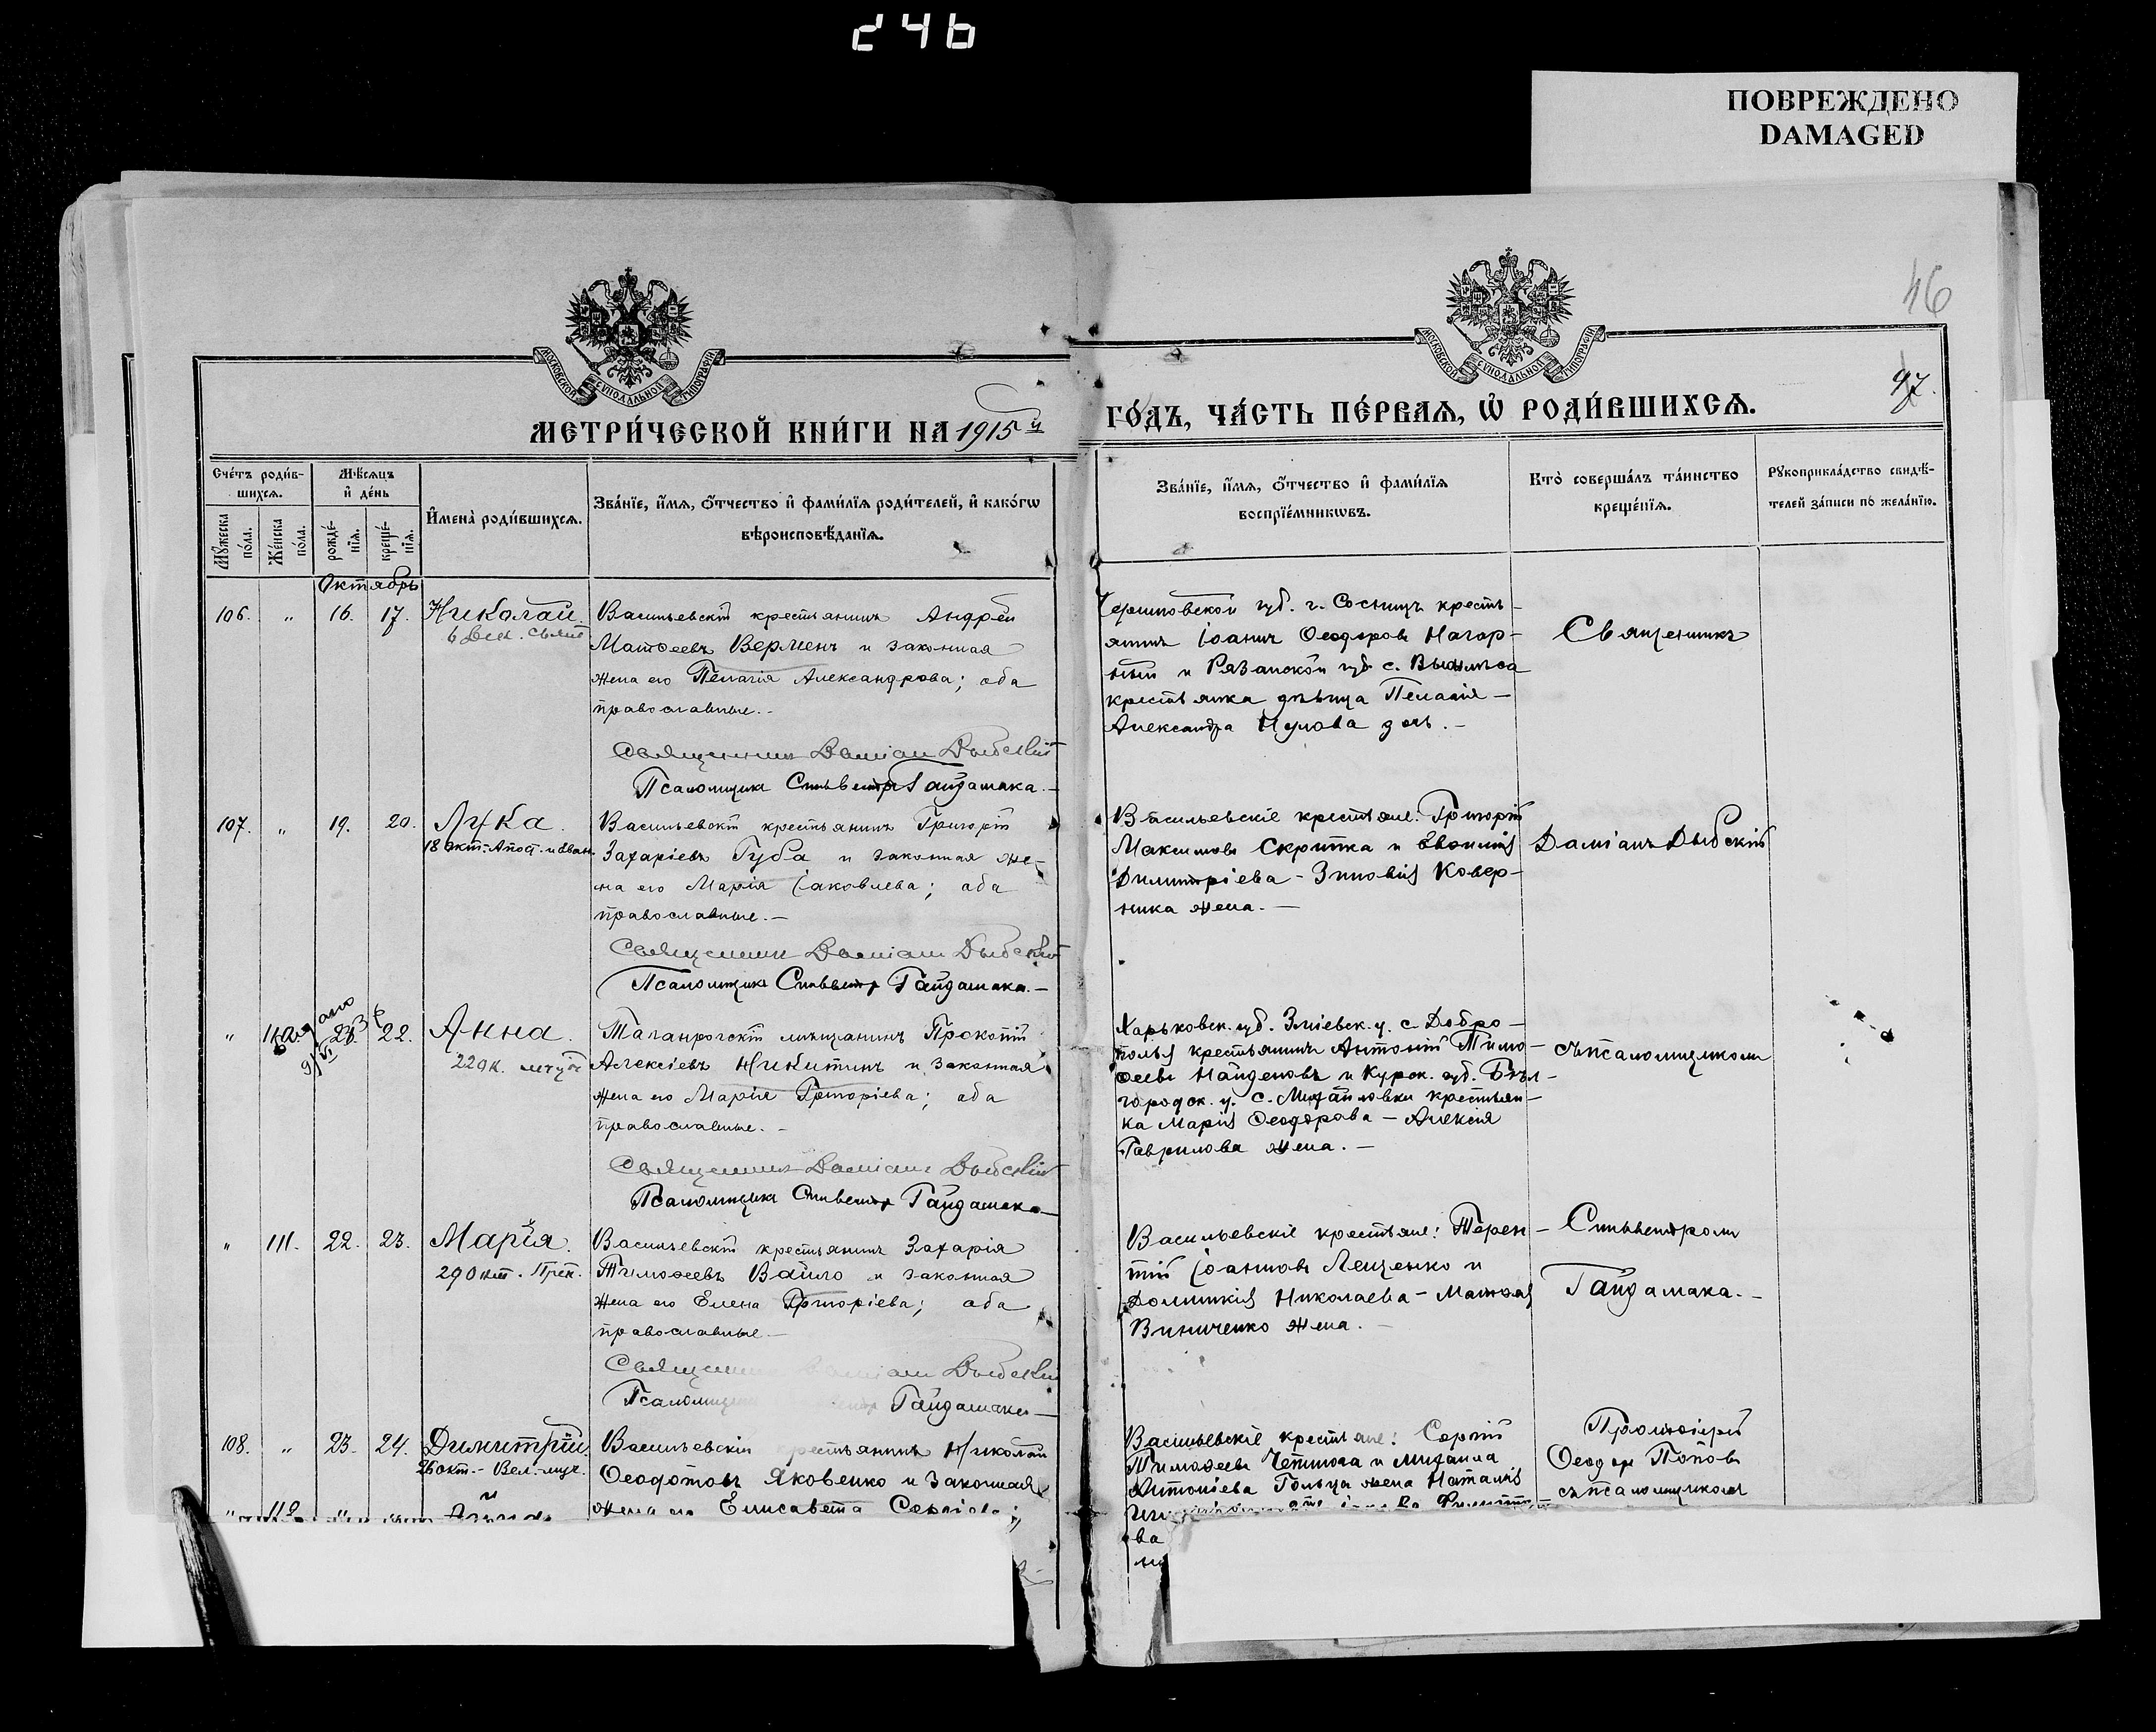 246
ПОВРЕЖДЕНО
DAMAGED
46
97.
МОСКОВСКОЙ СѴНОДАЛЬНОЙ ТИПОГРАФІИ
МОСКОВСКОЙ СѴНОДАЛЬНОЙ ТИПОГРАФІИ
МЕТРИ́ЧЕСКОЙ КНИ́ГИ НА 1915й
ГО́ДЪ, ЧА́СТЬ ПЕ́РВАЯ, Ѡ҆ РОДИ́ВШИХСЯ.
Сче́тъ роди́в-
шихся.
Мꙋ́жеска по́ла.
Же́нска по́ла.
Мѣ́сяцъ
и҆ де́нь
рожде́-
нїя.
креще́-
нїя.
И҆мена̀ роди́вшихся.
Зва́нїе, и҆́мя, ѻ҆́тчество и҆ фами́лїя роди́телей, и҆ како́гѡ
вѣроисповѣ́данїя.
Зва́нїе, и҆́мя, ѻ҆́тчество и҆ фами́лїя
воспрїе́мникѡвъ.
Кто̀ соверша́лъ та́инство
креще́нїя.
Рꙋкоприкла́дство свидѣ́-
телей за́писи по жела́нїю.
Октябрь
106. „ 16. 17. Николай.
6 дек.
Васильевскій крестьянинъ Андрей
Матѳеевъ Верменъ и законная
жена его Пелагія Александрова; оба
православные.-
Священникъ Даміанъ Дыбскій
Псаломщикъ Сильвестръ Гайдамака.-
Черниговской губ. г. Сосницъ кресть-
янинъ Іоаннъ Ѳеодоровъ Нагор-
ный и Рязанской губ. с.
крестьянка дѣвица Пелагія-
Александра дочь.-
Священникъ
107. „ 19. 20. Лука.
18 окт. Апост. и еван.
Васильевскій крестьянинъ Григорій
Захаріевъ Губа и законная же-
на его Марія Іаковлева; оба
православные.-
Священникъ Даміанъ Дыбскій
Псаломщикъ Сильвестръ Гайдамака.-
Васильевскіе крестьяне: Григорій
Максимовъ Скрипка и Евѳимія
Димитріева - Зиновія Ковер-
ника жена.-
Даміанъ Дыбскій
„ 110. 22. Анна.
22 ок.
Таганрогскій мѣщанинъ Прокопій
Алексіевъ Никитинъ и законная
жена его Марія Григоріева; оба
православные.-
Священникъ Даміанъ Дыбскій
Псаломщикъ Сильвестръ Гайдамака-
Харьковск. губ. Зміевск. у. с. Добро-
полья крестьянинъ Антоній Тимо-
ѳеевъ Найденовъ и Курск. губ. Бѣл-
городск. у. с. Михайловки крестьян-
ка Марія Ѳеодорова - Алексія
Гаврилова жена.-
съ псаломщикомъ
„ 111. 22. 23. Марія.
29 окт. Преп.
Васильевскій крестьянинъ Захарія
Тимоѳеевъ Вайло и законная
жена его Елена Григоріева; оба
православные.-
Даміанъ Дыбскій
Гайдамака-
Васильевскіе крестьяне: Терен-
тій Іоанновъ Лещенко и
Домникія Николаева - Матѳея
Виниченко жена.-
Сильвестромъ
Гайдамака.-
108. „ 23. 24. Димитрій
26 окт.- Вел.-муч.
Васильевскій крестьянинъ Николай
Ѳеодотовъ Яковенко и законная
жена его Елисавета Сергіева;
Васильевскіе крестьяне: Сергій
Тимоѳеевъ и Михаила
Антоніева жена Наталія
Протоіерей
Ѳеодоръ Поповъ
съ псаломщикомъ
ва